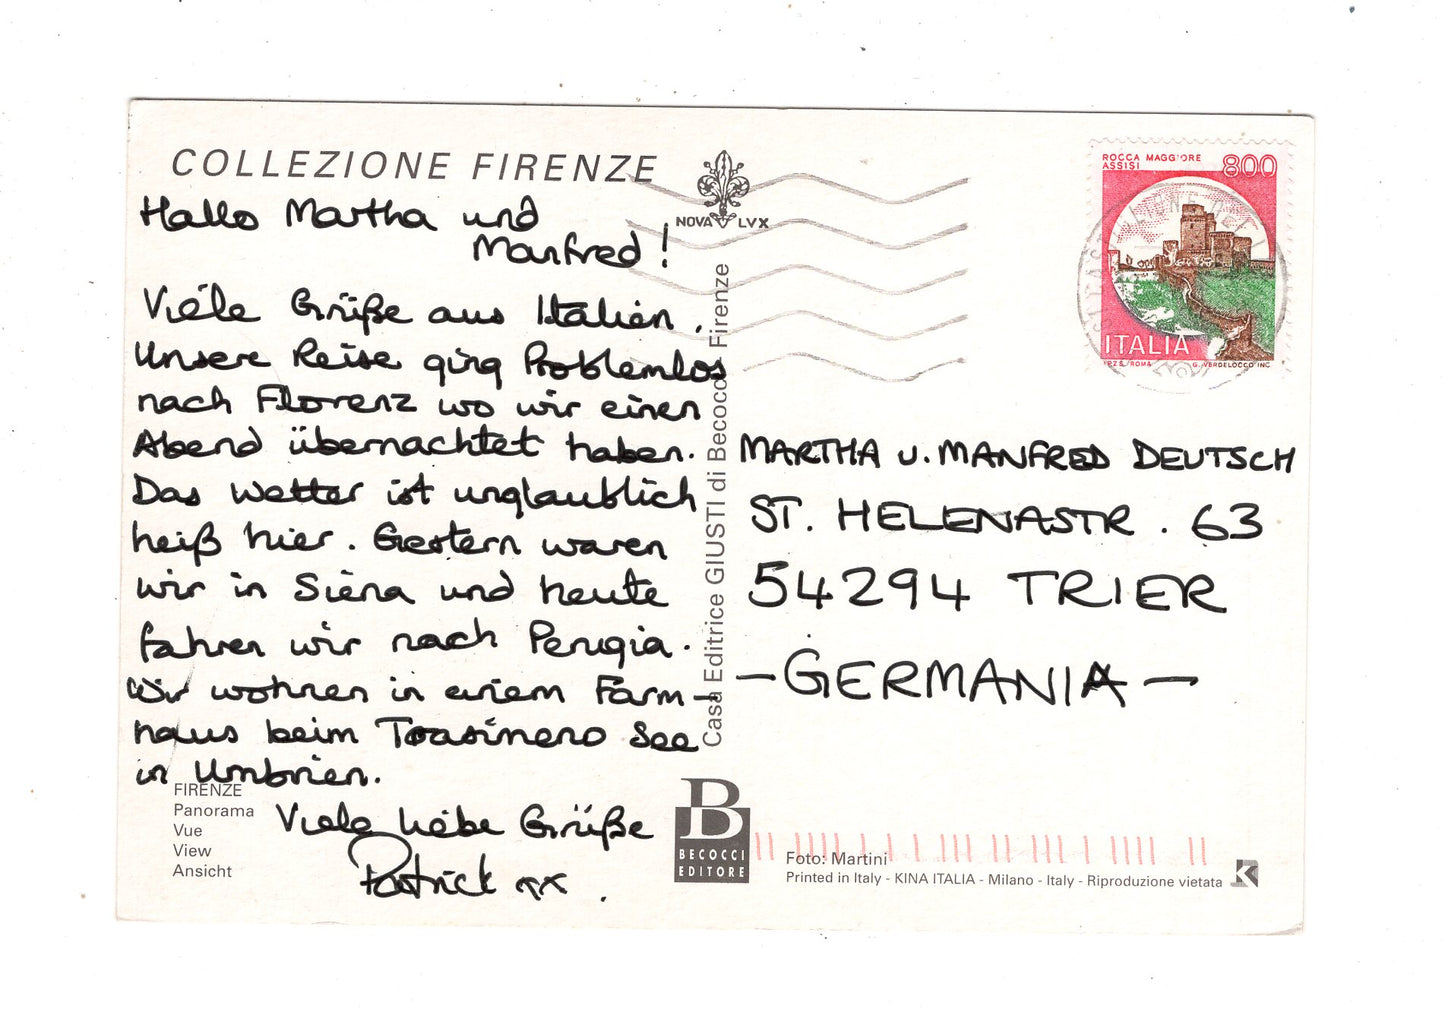 COLLEZIONE FIRENZE
NOVA LVX
Hallo Martha und
Manfred!
Viele Grüße aus Italien.
Unsere Reise ging Problemlos
nach Florenz wo wir einen
Abend übernachtet haben.
Das Wetter ist unglaublich
heiß hier. Gestern waren
wir in Siena und heute
fahren wir nach Perugia.
Wir wohnen in einem Farm-
haus beim Trasimeno See
in Umbrien.
Viele liebe Grüße
Patrick xx.
FIRENZE
Panorama
Vue
View
Ansicht
Casa Editrice GIUSTI di Becocci - Firenze
ROCCA MAGGIORE
ASSISI
800
ITALIA
I.P.Z.S. ROMA G. VERDELOCCO INC.
MARTHA u. MANFRED DEUTSCH
ST. HELENASTR. 63
54294 TRIER
-GERMANIA-
B
BECOCCI
EDITORE
Foto: Martini
Printed in Italy - KINA ITALIA - Milano - Italy - Riproduzione vietata